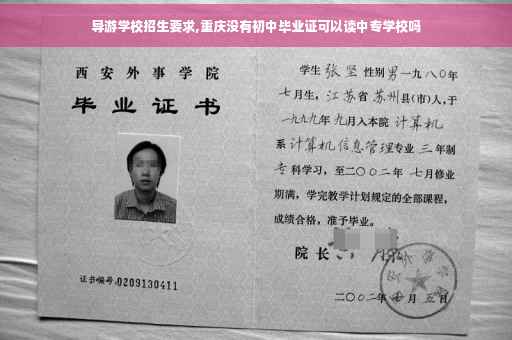 导游学校招生要求,重庆没有初中毕业证可以读中专学校吗
西安外事学院
毕业证书
证书编号:0209130411
学生 张坚 性别 男 一九八〇年
七月生, 江苏省 苏州县(市)人, 于
一九九九年 九月入本院 计算机
系 计算机信息管理专业 三 年制
专科学习, 至二〇〇二年 七月修业
期满, 学完教学计划规定的全部课程,
成绩合格, 准予毕业。
院长
二〇〇二年 月五日